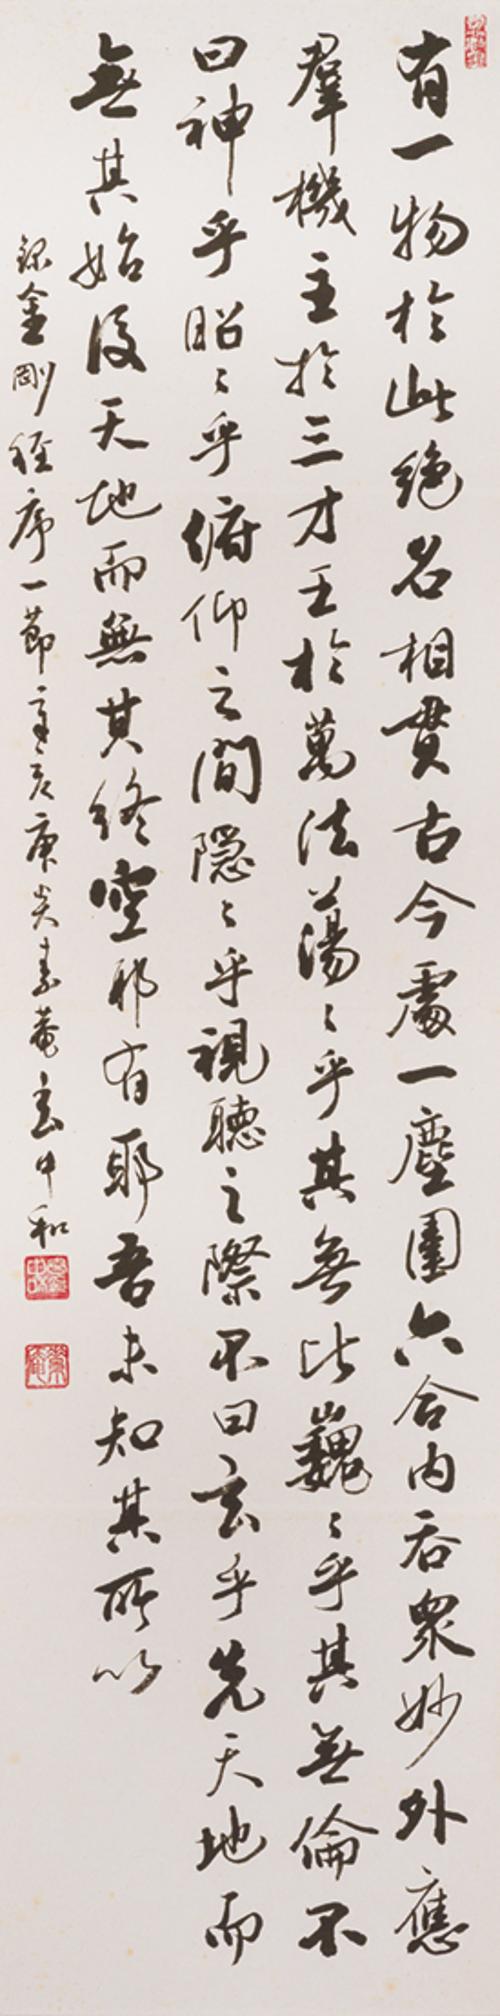 有一物於此絶名相貫古今處一塵圍六合内呑衆妙外應
羣機主於三才王於萬法蕩々乎其無比巍々乎其無倫不
曰神乎昭々乎俯仰之間隱々乎視聽之際不曰玄乎先天地而
無其始後天地而無其終空邪有耶吾未知其所以
錄金剛經序一節辛亥庚炎素菴玄中和